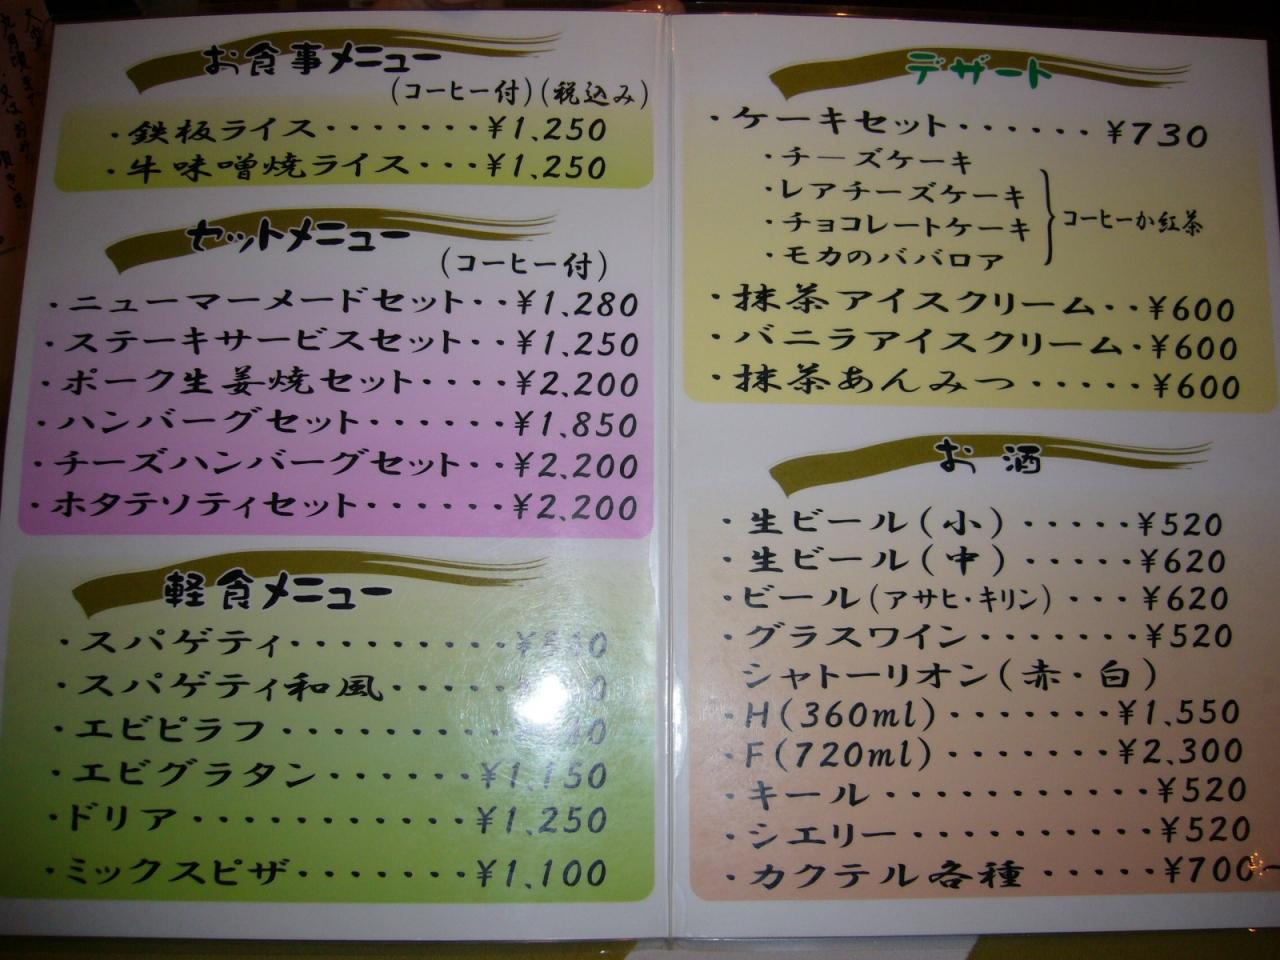 お食事メニュー
(コーヒー付)(税込み)
・鉄板ライス・・・・・・・¥1,250
・牛味噌焼ライス・・・¥1,250
セットメニュー
(コーヒー付)
・ニューマーメードセット・・¥1,280
・ステーキサービスセット・・¥1,250
・ポーク生姜焼セット・・・・¥2,200
・ハンバーグセット・・・・・・¥1,850
・チーズハンバーグセット・・¥2,200
・ホタテソティセット・・・・・・¥2,200
軽食メニュー
・スパゲティ・・・・・・・・・
・スパゲティ和風・・・・・
・エビピラフ・・・・・・・・・
・エビグラタン・・・・・・¥1,150
・ドリア・・・・・・・・・・・¥1,250
・ミックスピザ・・・・・・・¥1,100
デザート
・ケーキセット・・・・・・¥730
・チーズケーキ
・レアチーズケーキ
・チョコレートケーキ
・モカのババロア
コーヒーか紅茶
・抹茶アイスクリーム・・¥600
・バニラアイスクリーム・¥600
・抹茶あんみつ・・・・・¥600
お酒
・生ビール(小)・・・・・¥520
・生ビール(中)・・・・・¥620
・ビール(アサヒ・キリン)・・・¥620
・グラスワイン・・・・・・・¥520
シャトーリオン(赤・白)
・H(360ml)・・・・・・・¥1,550
・F(720ml)・・・・・・・¥2,300
・キール・・・・・・・・・・・¥520
・シエリー・・・・・・・・・・¥520
・カクテル各種・・・・・¥700〜